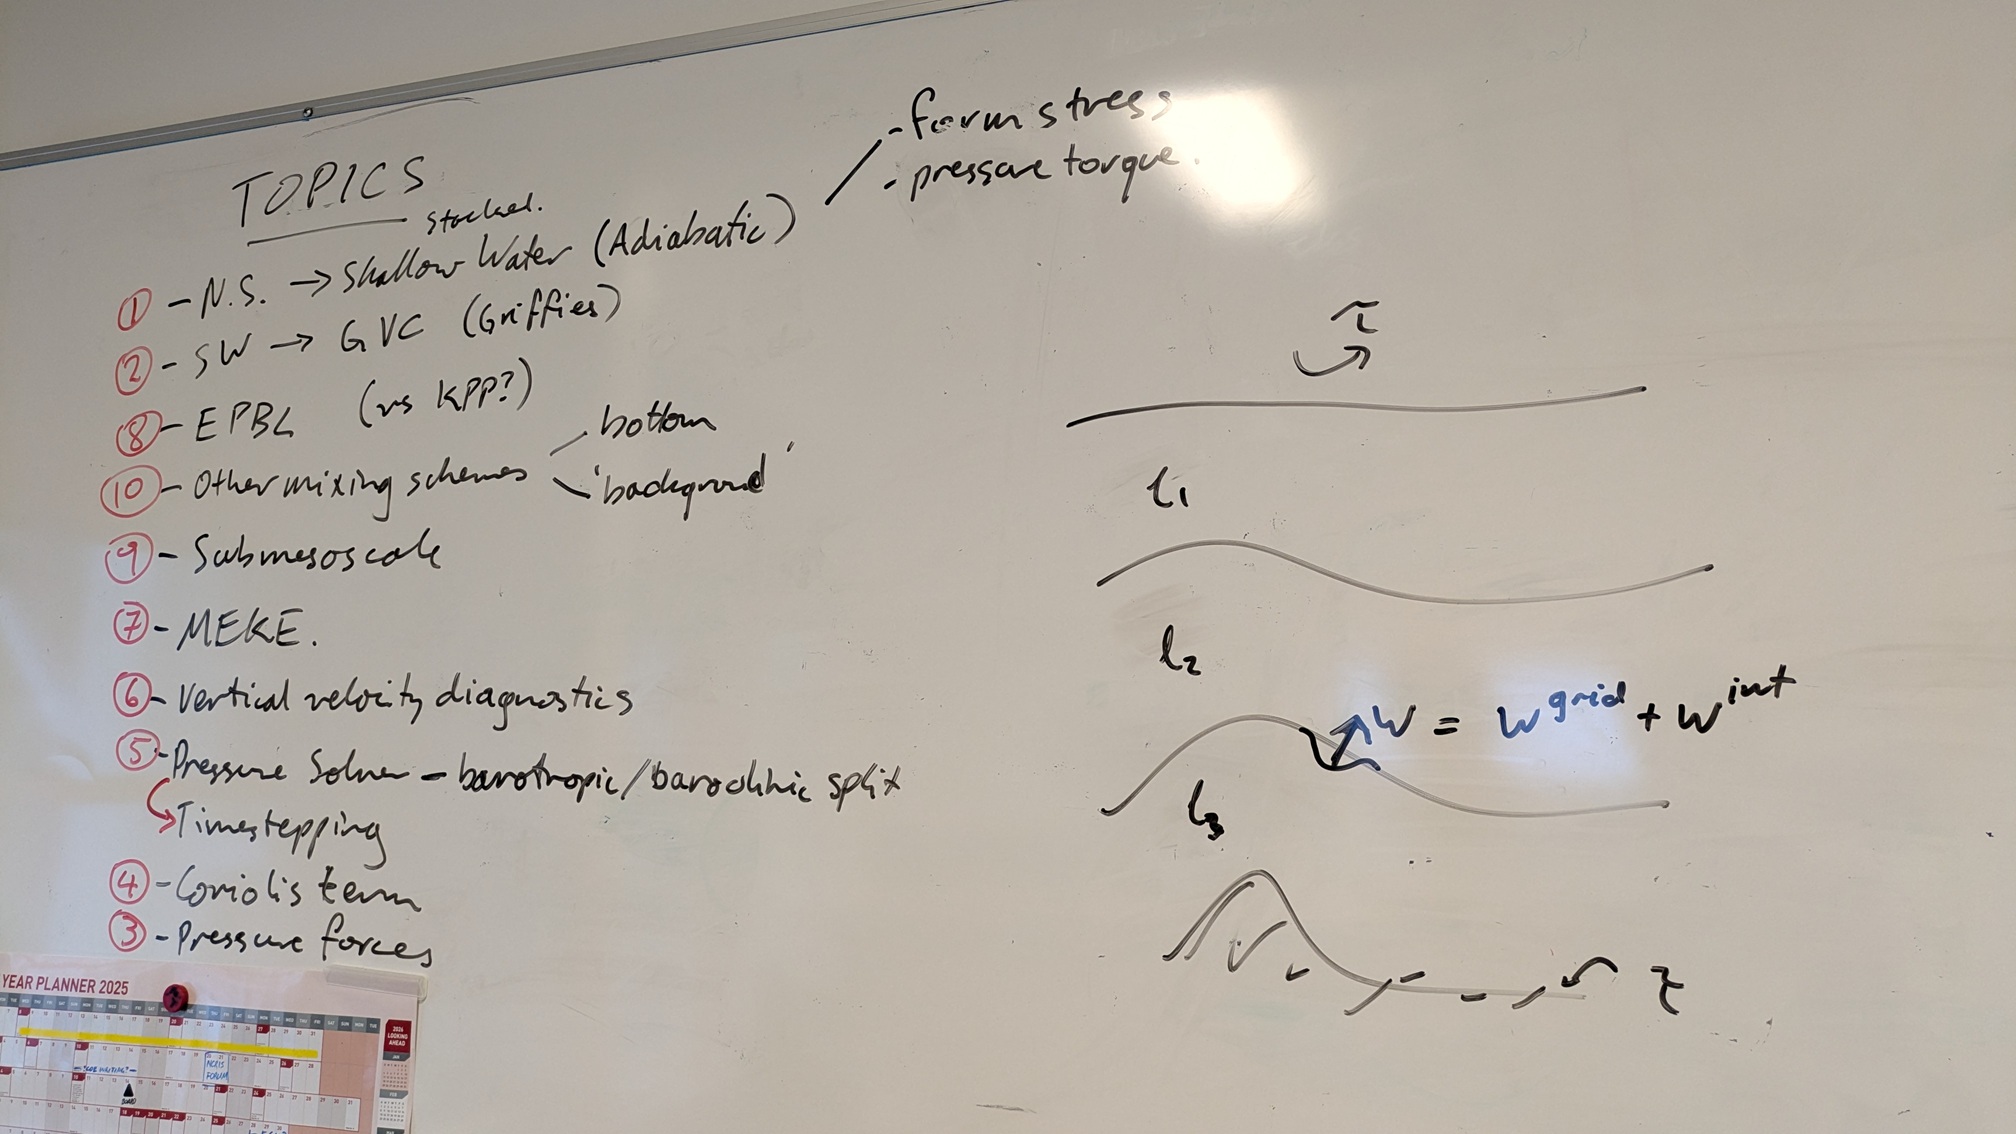 - form stress
- pressure torque.
TOPICS
stacked.
① - N.S. → Shallow Water (Adiabatic)
② - SW → GVC (Griffies)
⑧ - EPBL (vs KPP?)
bottom
⑩ - Other mixing schemes
'background'
⑨ - Submesoscale
⑦ - MEKE.
⑥ - Vertical velocity diagnostics
⑤ - Pressure Solver - barotropic/baroclinic split
Timestepping
④ - Coriolis term
③ - Pressure forces
τ
l₁
l₂
W = W^grid + W^int
l₃
τ
YEAR PLANNER 2025
2026
LOOKING
AHEAD
JAN
FEB
NCRIS
FORUM